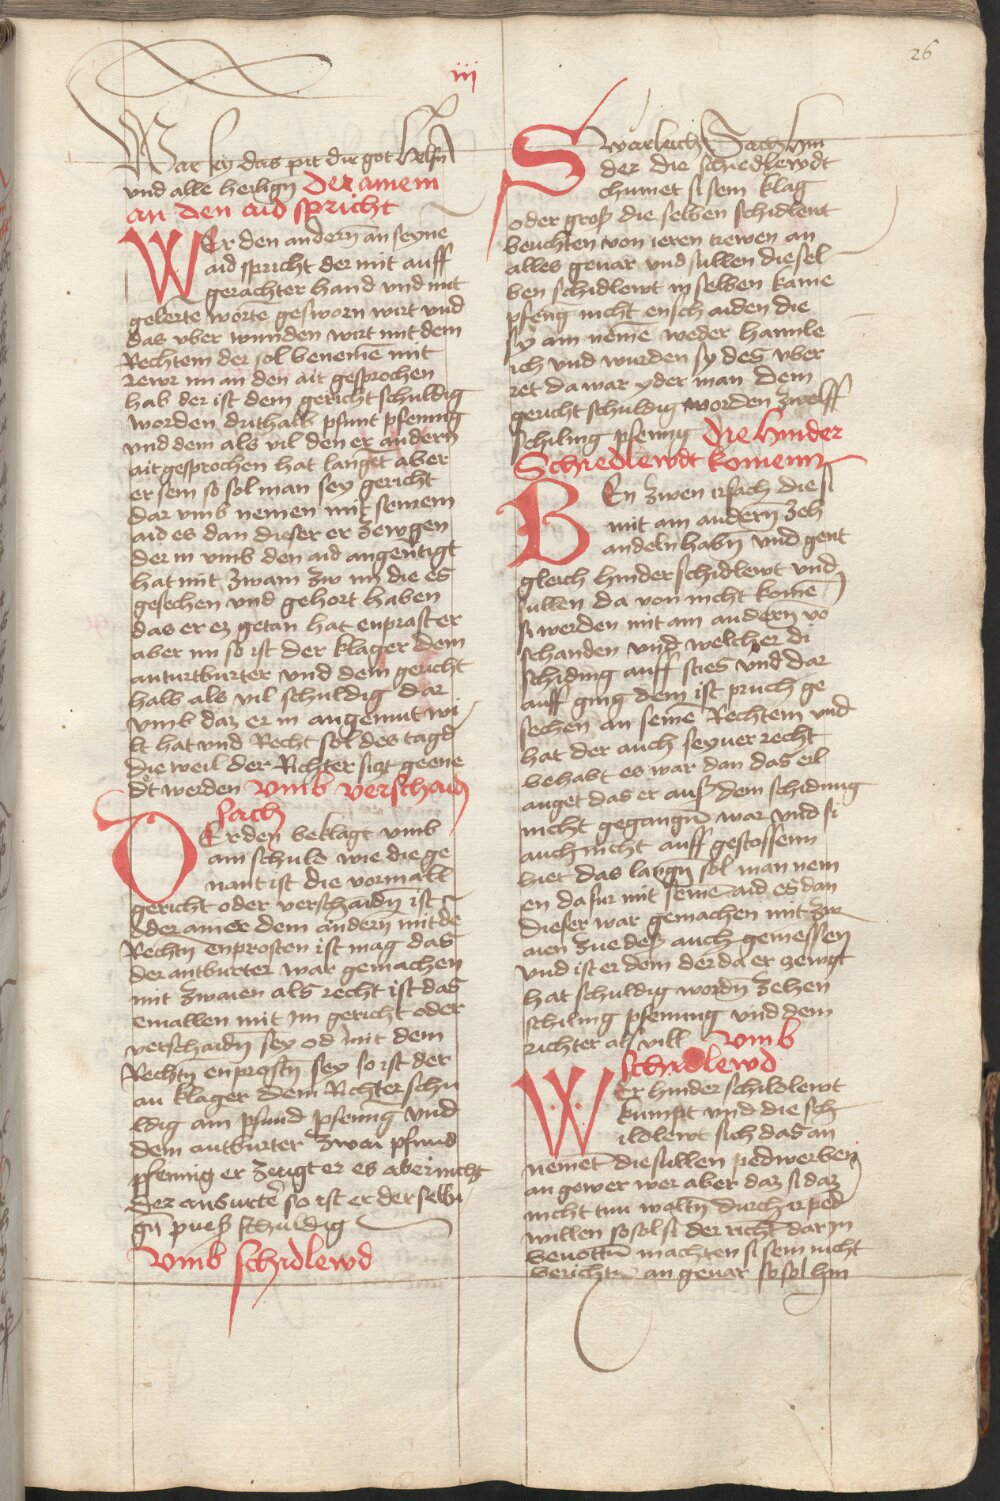 26
iii
War sey das pit dir got helfn
vnd alle heilign Der ainem
an den aid spricht
WEr den andern an seyne
aid spricht der mit auff
gerachter hand vnd mit
gelerte worte gesworn wirt vnd
das vber wunden wirt mit dem
Rechtem der sol beneme mit
rewr im an den ait gesprochen
hab der ist dem gericht schuldig
worden drithalb pfunt pfennig
vnd dem als vil den er andern
ait gesprochen hat langet aber
er sem so sol man sey gericht
dar vmb nemen mit seinem
aid es dan dieser er zewgen
der in vmb den aid angentigt
hat mit zwain zw im die es
gesechen vnd gehort haben
das er ez getan hat enpraster
aber im so ist der klager dem
anturburter vnd dem gericht
halb als vil schuldig dar
vmb daz er in angemut wi
lt hat vnd Recht sol des tagd
die weil der Richter sigt geene
dt werden vmb verschaid
lach
DEr den beklagt vmb
ain schuld wie die ge
nant ist die vormalt
gericht oder verschaidn ist
oder ainer dem andern mit de
Rechtn enprosten ist mag das
der antburter war gemachen
mit zwaien als recht ist das
emallen mit im gericht oder
verschaidn sey od mit dem
Rechtn enprostn sey so ist der
an klager dem Richter schu
ldig ain pfund pfennig vnd
dem antburter zwen pfund
pfennig er zeugt er es aber nicht
der ansurte so ist er der selbi
gn pueß schuldig
vmb schidlewd
Swarleich Sach hin
der die schiedlewdt
chumet si sein klag
oder groß die selben schidlewt
beuchten von ieren trewen an
alles geuar vnd sullen die sel
ben schidlewt in selben kaine
pfeng nicht ensch aiden die
sy ain neme weder haimle
ich vnd wurden sy des vber
ret da war yder man dem
gericht schuldig worden zwelff
schiling pfennig die hinder
Schiedlewdt komenn
BEn zwen ir sach die si
mit ain andern zeh
andeln habn vnd gent
gleich hinder schidlewt vnd
sullen da von nicht kome
si werden mit ain andern vo
schanden vnd welcher di
schiding auff sties vnd dar
auff ging dem ist pruch ge
sechen an seine Rechtem vnd
hat der auch seyner recht
behabt es war dan das eil
auget das er auß dem schidung
nicht gegangn war vnd si
auch nicht auff gestossenn
hiet das laugn sol man nem
en da fur mit seine aid es dan
dieser war gemachen mit zw
aien zue des auch geniessen
vnd ist er dem der da er zewgt
hat schuldig wordn zehen
schiling pfennig vnd dem
richter als vill vmb
schidlewd
WEr hinder schildlewt
kumpt vnd die sch
ildlewt sich das an
nemet die sullen pedwerben
an gewer wer aber daz si daz
nicht tun woltn durch er ped
willen so sol si der richt dar in
benottn machten si sein nicht
bericht an geuar so sol hin